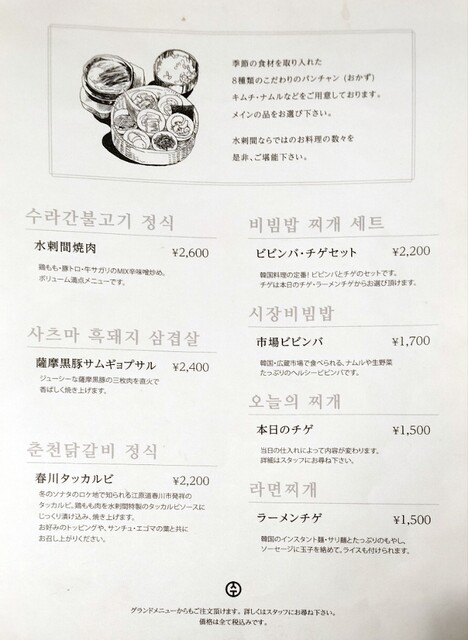 季節の食材を取り入れた
8種類のこだわりのバンチャン (おかず)
キムチ・ナムルなどをご用意しております。
メインの品をお選び下さい。
水刺間ならではのお料理の数々を
是非、ご堪能下さい。
수라간불고기 정식
水刺間焼肉 ¥2,600
鶏もも・豚トロ・牛サガリのMIX辛味噌炒め、
ボリューム満点メニューです。
사츠마 흑돼지 삼겹살
薩摩黒豚サムギョプサル ¥2,400
ジューシーな薩摩黒豚の三枚肉を直火で
香ばしく焼き上げます。
춘천닭갈비 정식
春川タッカルビ ¥2,200
冬のソナタのロケ地で知られる江原道春川市発祥の
タッカルビ。鶏もも肉を水刺間特製のタッカルビソースに
じっくり漬け込み、焼き上げます。
お好みのトッピングや、サンチュ・エゴマの葉と共に
お召し上がりください。
비빔밥 찌개 세트
ビビンバ・チゲセット ¥2,200
韓国料理の定番! ビビンバとチゲのセットです。
チゲは本日のチゲ・ラーメンチゲからお選び頂けます。
시장비빔밥
市場ビビンバ ¥1,700
韓国・広蔵市場で食べられる、ナムルや生野菜
たっぷりのヘルシービビンバです。
오늘의 찌개
本日のチゲ ¥1,500
当日の仕入れによって内容が変わります。
詳細はスタッフにお尋ね下さい。
라면찌개
ラーメンチゲ ¥1,500
韓国のインスタント麺・サリ麺とたっぷりのもやし、
ソーセージに玉子を絡めて。ライスも付けられます。
グランドメニューからもご注文頂けます。詳しくはスタッフにお尋ね下さい。
価格は全て税込みです。